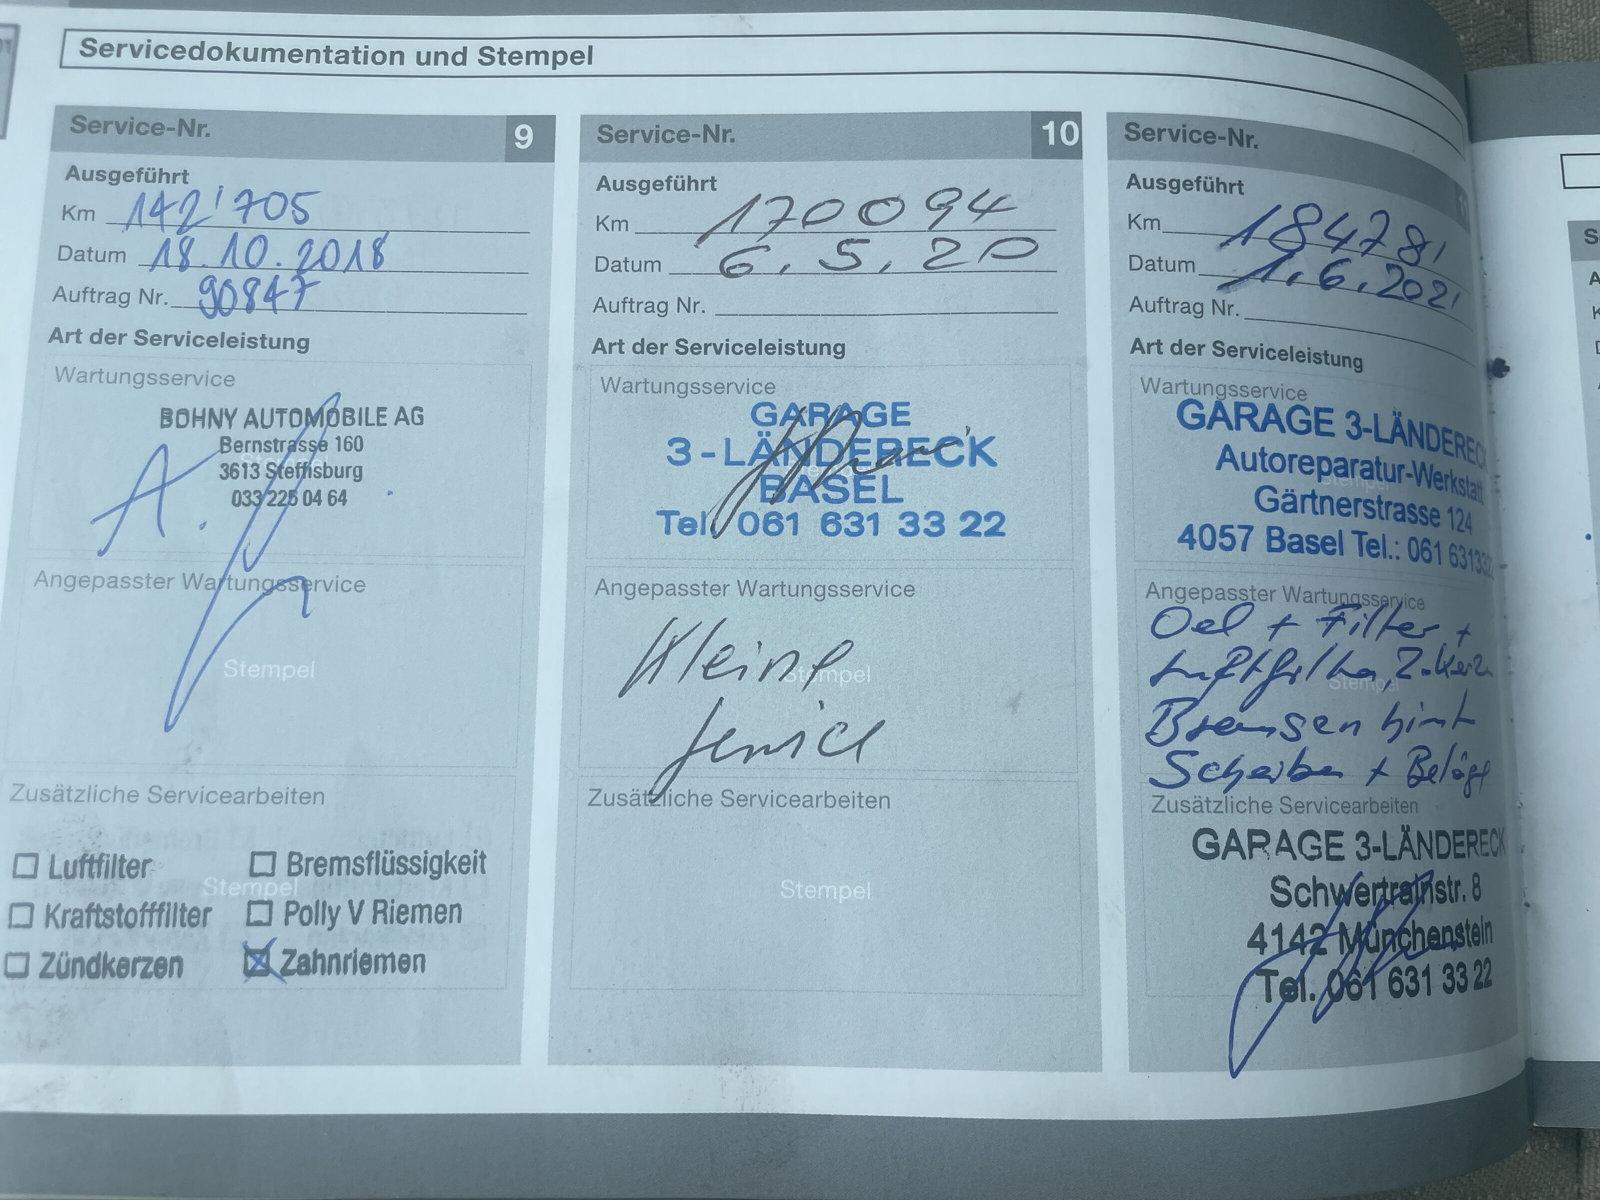 Servicedokumentation und Stempel
Service-Nr. 9
Ausgeführt
Km 142'705
Datum 18.10.2018
Auftrag Nr. 90847
Art der Serviceleistung
Wartungsservice
BOHNY AUTOMOBILE AG
Bernstrasse 160
3613 Steffisburg
033 225 04 64
Angepasster Wartungsservice
Stempel
Zusätzliche Servicearbeiten
Luftfilter Bremsflüssigkeit
Stempel
Kraftstofffilter Polly V Riemen
Zündkerzen Zahnriemen
Service-Nr. 10
Ausgeführt
Km 170094
Datum 6.5.20
Auftrag Nr.
Art der Serviceleistung
Wartungsservice
GARAGE
3-LÄNDERECK
BASEL
Tel. 061 631 33 22
Angepasster Wartungsservice
Kleine
Stempel
Service
Zusätzliche Servicearbeiten
Stempel
Service-Nr. 11
Ausgeführt
Km 184781
Datum 1.6.2021
Auftrag Nr.
Art der Serviceleistung
Wartungsservice
GARAGE 3-LÄNDERECK
Autoreparatur-Werkstatt
Gärtnerstrasse 124
4057 Basel Tel.: 061 631 33
Angepasster Wartungsservice
Oel + Filter +
Luftfilter, Z.Kerzen
Stempel
Bremsen hint
Scheiben + Beläge
Zusätzliche Servicearbeiten
GARAGE 3-LÄNDERECK
Schwertrainstr. 8
4142 Münchenstein
Tel. 061 631 33 22